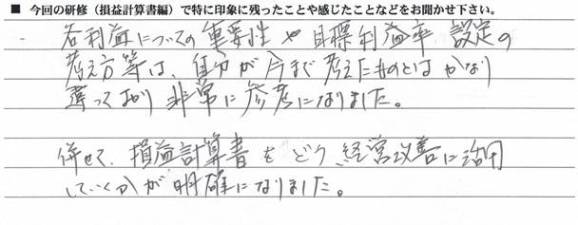 ■ 今回の研修（損益計算書編）で特に印象に残ったことや感じたことなどをお聞かせ下さい。
各利益についての重要性や目標利益率設定の
考え方等は、自分が今まで考えたものとはかなり
違っており非常に参考になりました。
併せて、損益計算書をどう経営改善に活用
していくかが明確になりました。